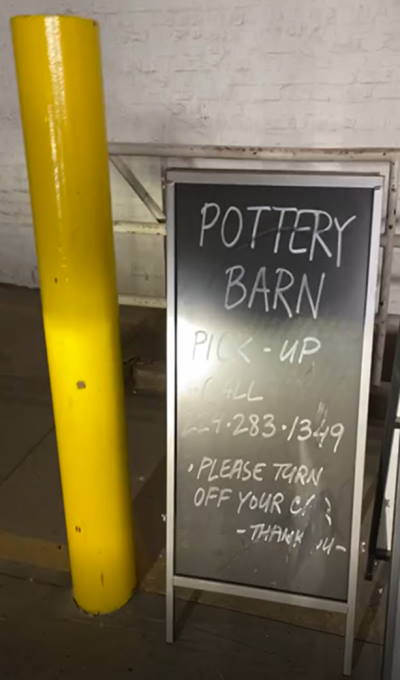 POTTERY
BARN
PICK-UP
CALL
283·1349
·PLEASE TURN
OFF YOUR
-THANK